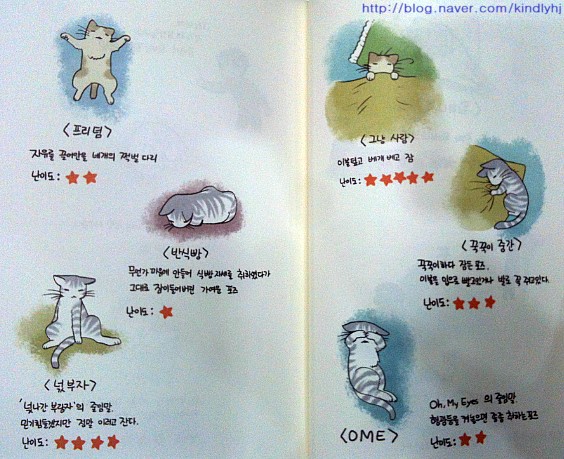 http://blog.naver.com/kindlyhj
<프리덤>
자유를 끌어안은 네개의 쩍벌 다리
난이도:
<반식빵>
무언가 마음에 안들어 식빵자세를 취하였다가
그대로 잠이들어버린 가여운 포즈
난이도:
<넋부자>
'넋나간 부랑자'의 줄임말.
믿기힘들겠지만 정말 이러고 잔다.
난이도:
<그냥 사람>
이불덮고 베개 베고 잠
난이도:
<꾹꾹이 중간>
꾹꾹이하다 잠든 포즈.
이불을 입으로 빨고있거나 발로 꼭 쥐고있다.
난이도:
<OME>
Oh, My Eyes 의 줄임말.
형광등을 켜놓으면 종종 취하는포즈
난이도: